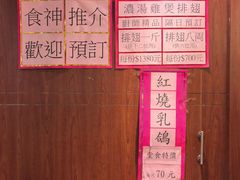 食神推介
歡迎預訂
濃湯雞煲排翅
廚師精品 隔日預訂
排翅一斤 排翅八兩
每份$1380元 每份$700元
紅燒乳鴿
堂食特價
70元